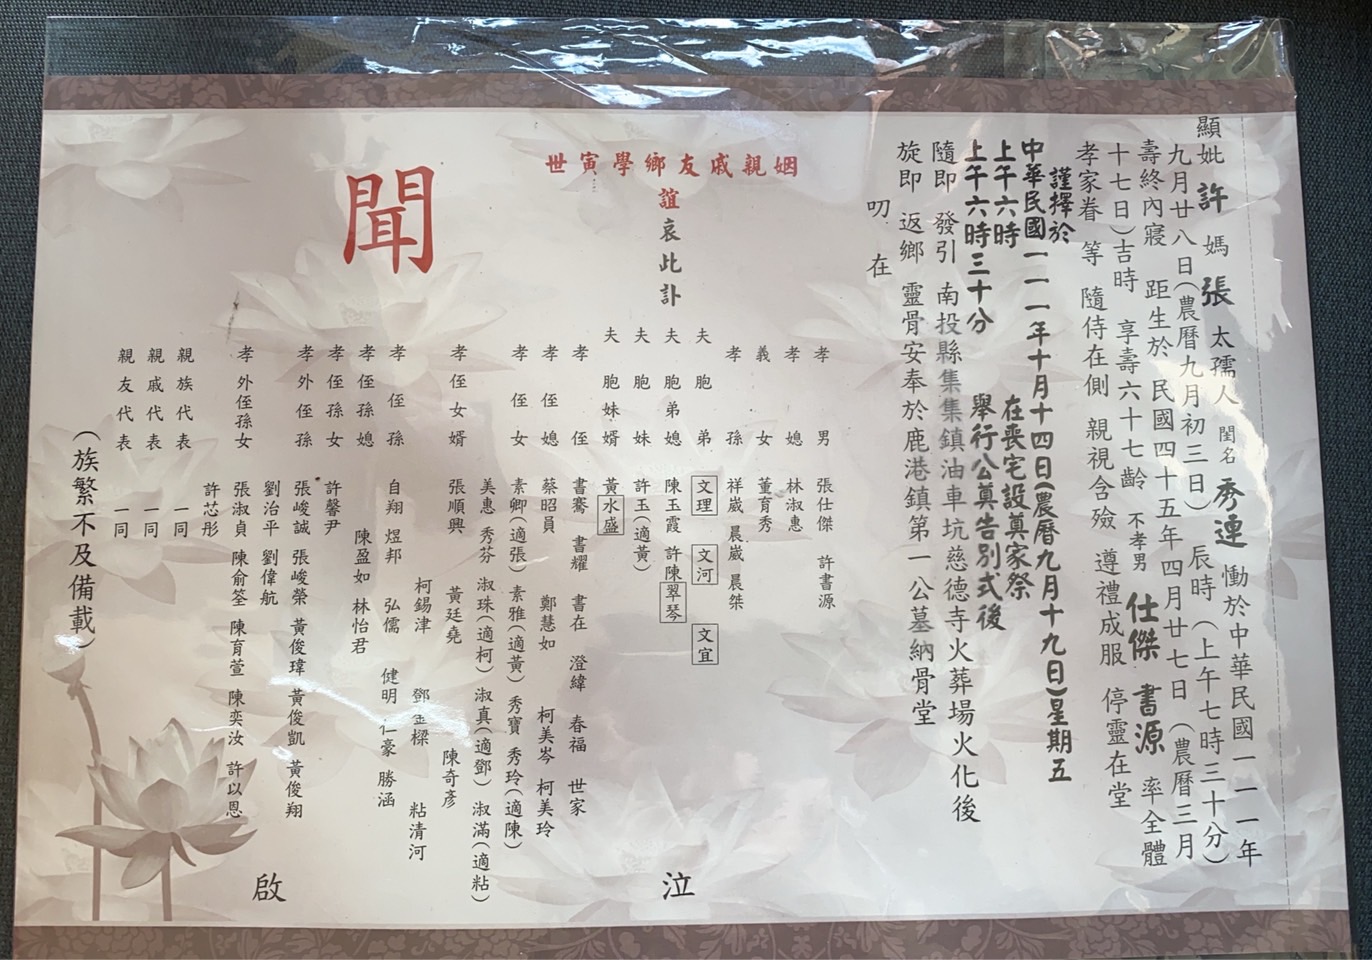 顯妣 許 媽 張 太孺人 閨名 秀連 慟於中華民國一一一年
九月廿八日(農曆九月初三日) 辰時 (上午七時三十分)
壽終內寢 距生於民國四十五年四月廿七日 (農曆三月
十七日)吉時 享壽六十七齡 不孝男 仕傑 書源 率全體
孝家眷 等 隨侍在側 親視含殮 遵禮成服 停靈在堂
謹擇於
中華民國一一一年十月十四日(農曆九月十九日)星期五
上午六時 在喪宅設奠家祭
上午六時三十分 舉行公奠告別式後
隨即 發引 南投縣集集鎮油車坑慈德寺火葬場火化後
旋即 返鄉 靈骨安奉於鹿港鎮第一公墓納骨堂
叨 在
姻親戚友鄉學寅世
誼哀此訃
聞
孝男 張仕傑 許書源
孝媳 林淑惠
義女 董育秀
孝孫 祥崴 晨崴 晨桀
夫胞弟 文理 文河 文宜
夫胞弟媳 陳玉霞 許陳翠琴
夫胞妹 許玉(適黃)
夫胞妹婿 黃水盛
孝侄 書騫 書耀 書在 澄緯 春福 世家
孝侄媳 蔡昭員 鄭慧如 柯美岑 柯美玲
孝侄女 素卿(適張) 素雅(適黃) 秀寶 秀玲(適陳)
美惠 秀芬 淑珠(適柯) 淑真(適鄧) 淑滿(適粘)
孝侄女婿 張順興 黃廷堯 陳奇彥
柯錫津 鄧金樑 粘清河
孝侄孫 自翔 煜邦 弘儒 健明 仁豪 勝涵
孝侄孫媳 陳盈如 林怡君
孝侄孫女 許馨尹
孝外侄孫 張峻誠 張峻榮 黃俊瑋 黃俊凱 黃俊翔
劉治平 劉偉航
孝外侄孫女 張淑貞 陳俞筌 陳育萱 陳奕汝 許以恩
許芯彤
親族代表 一同
親戚代表 一同
親友代表 一同
(族繁不及備載)
泣
啟